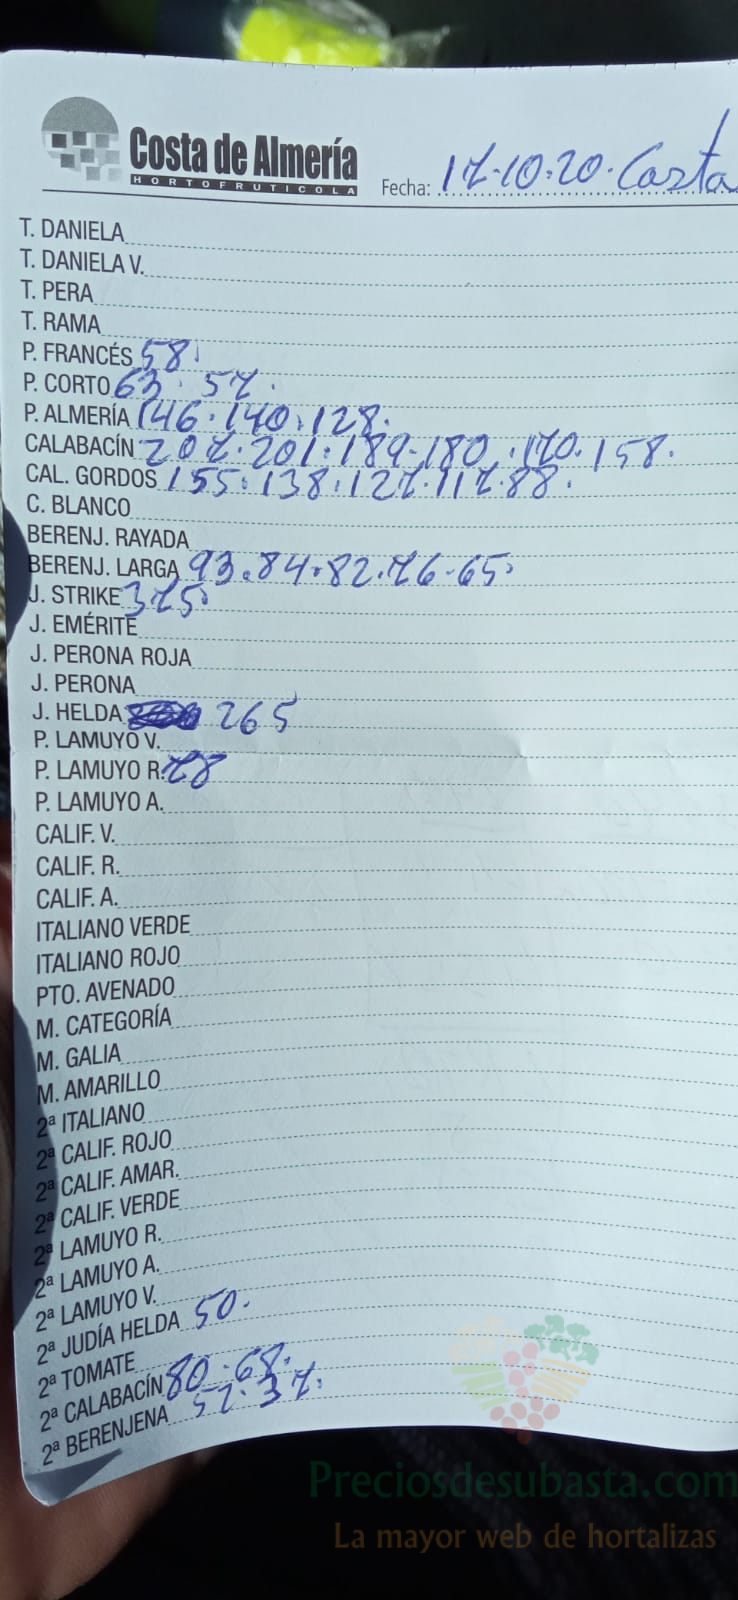 Costa de Almería
HORTOFRUTICOLA
Fecha: 17.10.20. Costa
T. DANIELA
T. DANIELA V.
T. PERA
T. RAMA
P. FRANCÉS 58.
P. CORTO 63. 57.
P. ALMERÍA 146. 140. 128.
CALABACÍN 207. 201. 189-180. 170. 158.
CAL. GORDOS 155. 138. 127. 117. 88.
C. BLANCO
BERENJ. RAYADA
BERENJ. LARGA 93. 84. 82. 76-65.
J. STRIKE 375.
J. EMÉRITE
J. PERONA ROJA
J. PERONA
J. HELDA 265
P. LAMUYO V.
P. LAMUYO R. 78
P. LAMUYO A.
CALIF. V.
CALIF. R.
CALIF. A.
ITALIANO VERDE
ITALIANO ROJO
PTO. AVENADO
M. CATEGORÍA
M. GALIA
M. AMARILLO
2ª ITALIANO
2ª CALIF. ROJO
2ª CALIF. AMAR.
2ª CALIF. VERDE
2ª LAMUYO R.
2ª LAMUYO A.
2ª LAMUYO V.
2ª JUDÍA HELDA 50.
2ª TOMATE
2ª CALABACÍN 80. 68.
2ª BERENJENA 57. 37.
Preciosdesubasta.com
La mayor web de hortalizas